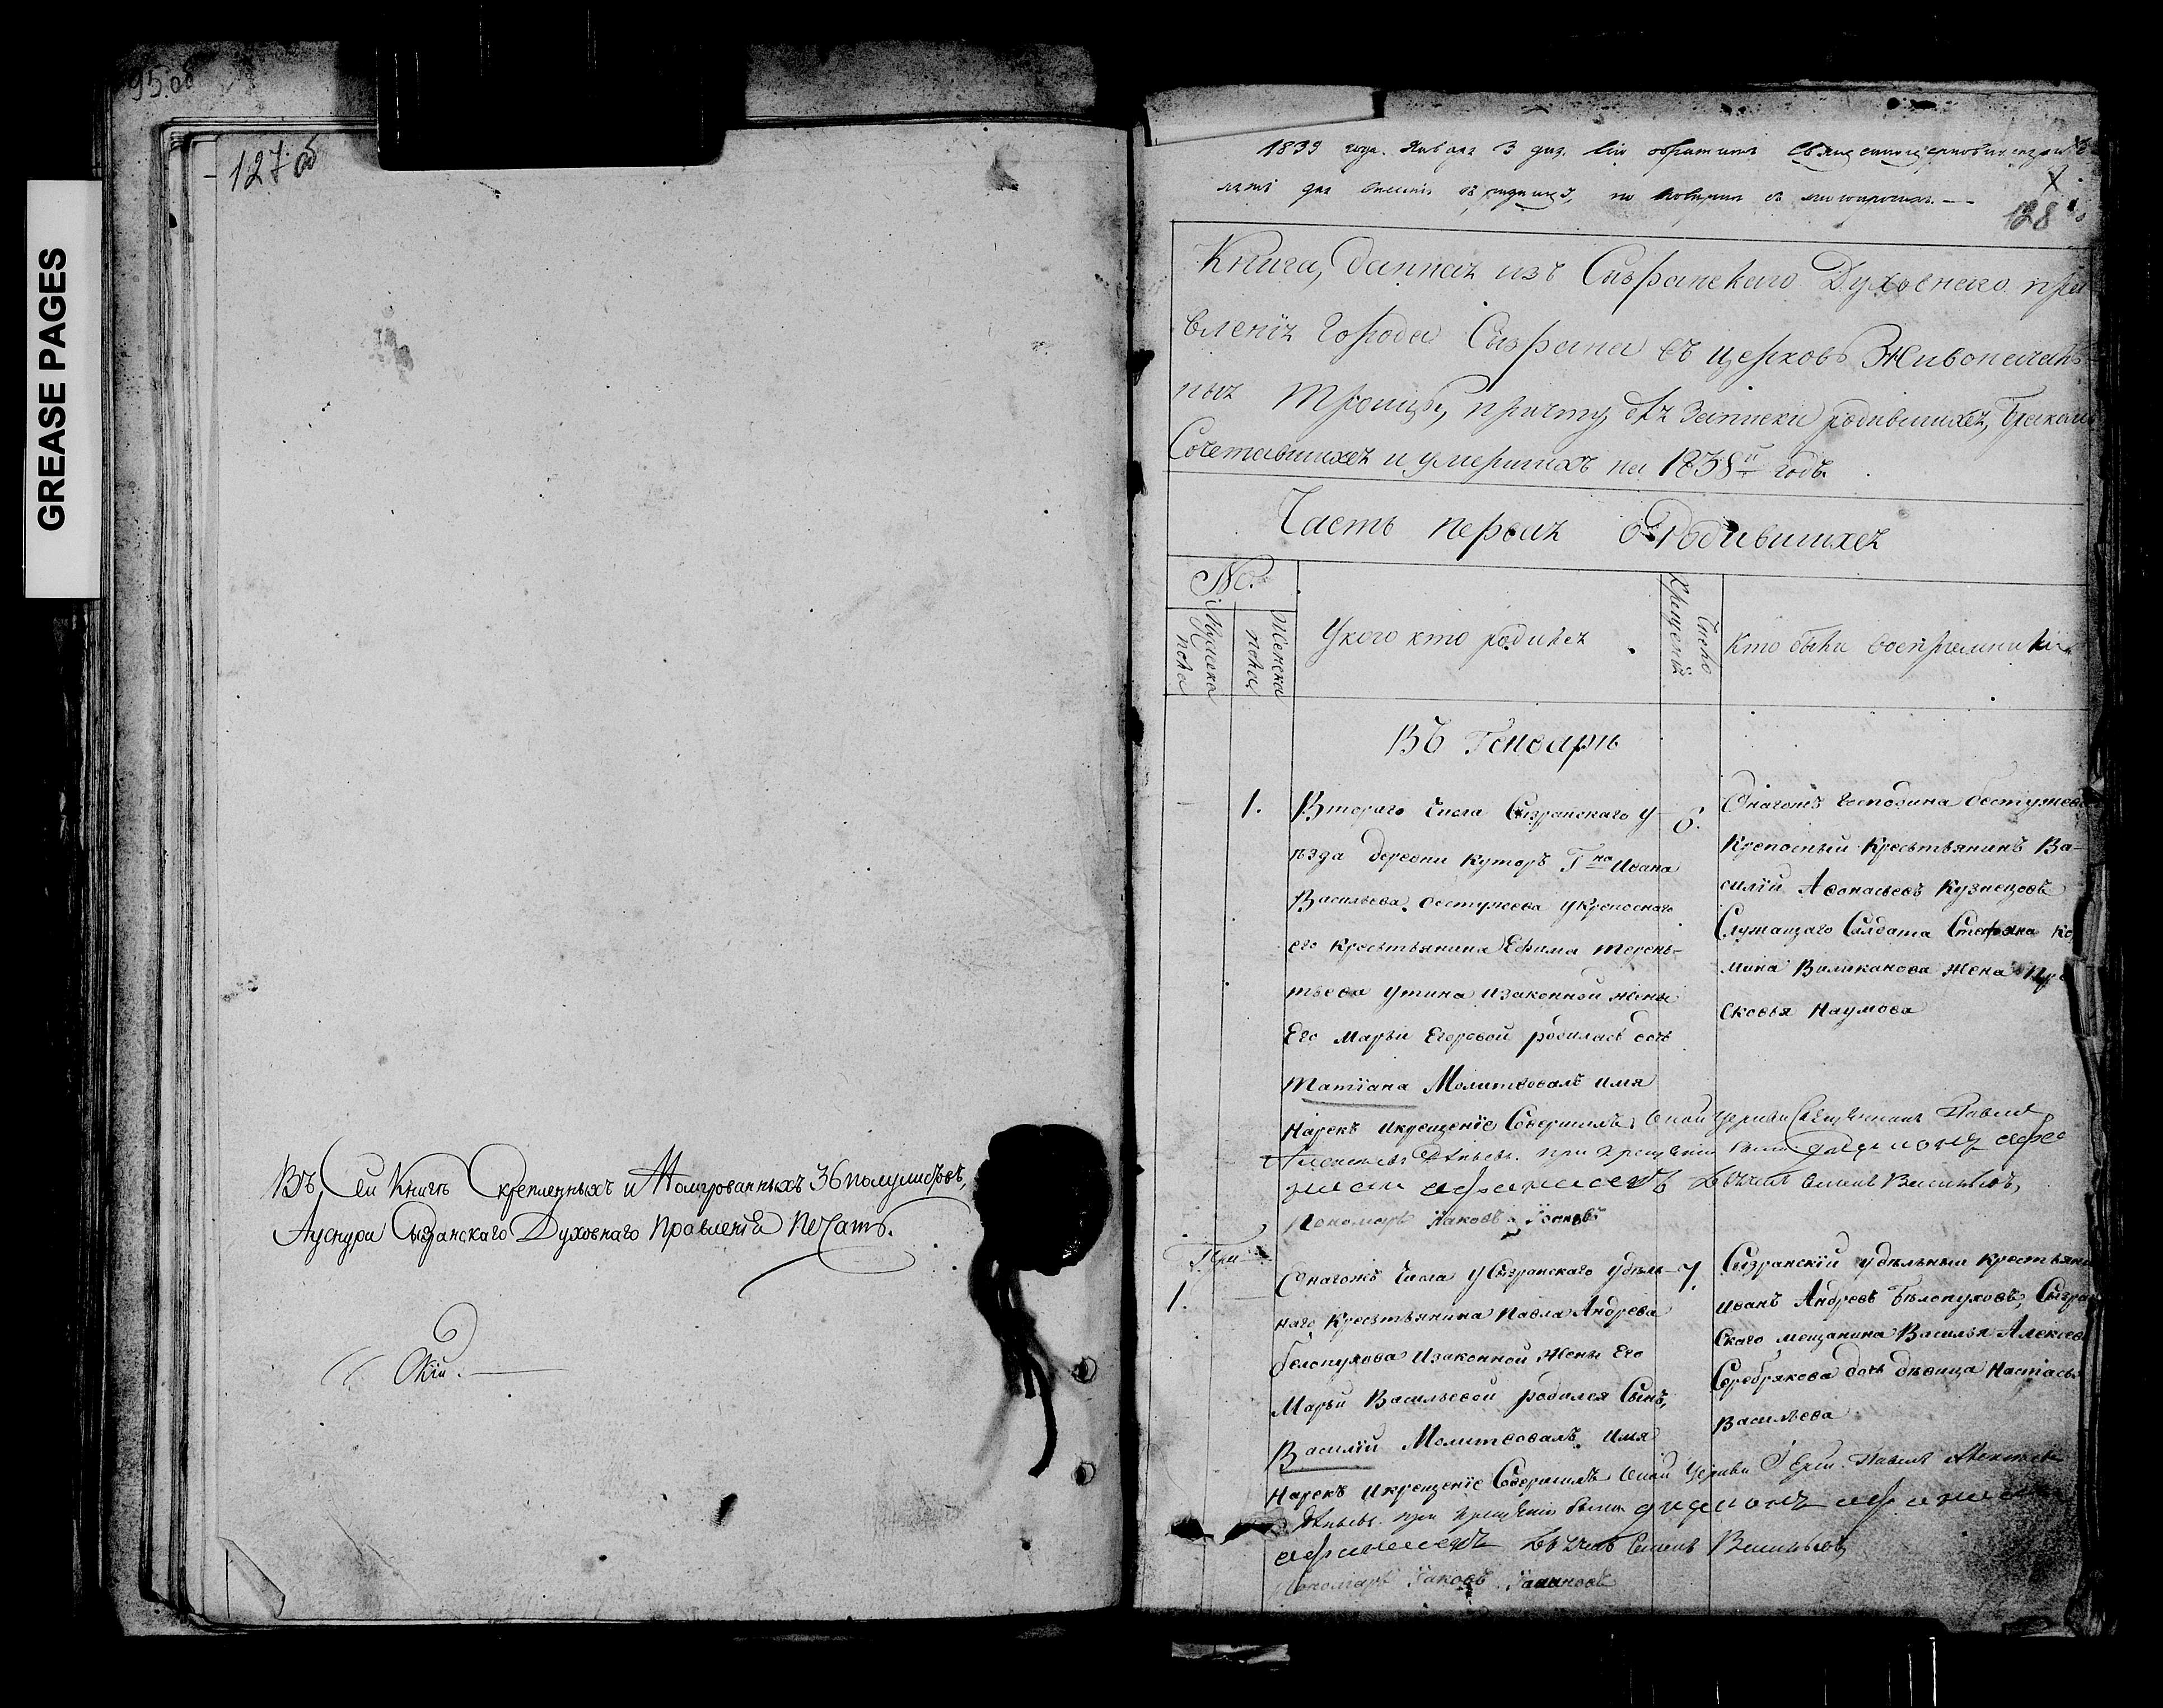 95 об
GREASE PAGES
127 об
Въ Сей Книгѣ Скрепленныхъ и Номерованныхъ 36 полулистовъ,
Ушнура Сызранскаго Духовнаго Правленія Печать.
1839 года. Января 3 дня. Сіи
для въ
128
Книга, данная изъ Сызранскаго Духовнаго пра
вленія города Сызрана въ церковь Живоначаль
ныя Троицы, причту для записки родившихся, бракомъ
Сочетавшихся и умершихъ на 1838й годъ.
Часть первая о Родившихся
№.
Мужеска пола
Женска пола
У кого кто родился
Число Крещенія
Кто были восприемники
Въ Генварѣ
1. Втораго числа Сызранскаго у-
ѣзда деревни Куторъ Гна Ивана
Васильева Бестужева у крепоснаго
его крестьянина Ефима Терень-
тьева Утина изаконной жены
Его Марьи Егоровой родилась дочь
Татіана Молитвовалъ имя
Нарекъ икрещеніе Совершилъ оной церкви Священникъ Павелъ
при крещеніи были
Семенъ Васильевъ,
Пономарь Іаковъ Іоанновъ
6.
Онагожъ Господина Бестужева
Крепостный Крестьянинъ Ва-
силій Афонасьевъ Кузнецовъ
Служащаго Салдата Стефана
мина Виликанова жена Пра
сковья Наумова
1. Онагожъ Числа у Сызранскаго удѣль-
наго Крестьянина Павла Андрева
белопухова изаконной жены его
Марьи Васильевой родился Сынъ,
Василій Молитвовалъ имя
Нарекъ икрещеніе Совершилъ оной Церкви Іерей Павелъ Алексѣевъ
при крещеніи были
Семенъ Васильевъ
Пономарь Іаковъ Іоанновъ
7.
Сызранскій удѣльный крестьяни
Иванъ Андреевъ Бѣлопуховъ, Сызран
скаго мещанина Василья Алексеев
Серебрякова дочь дѣвица Настасья
Васильева